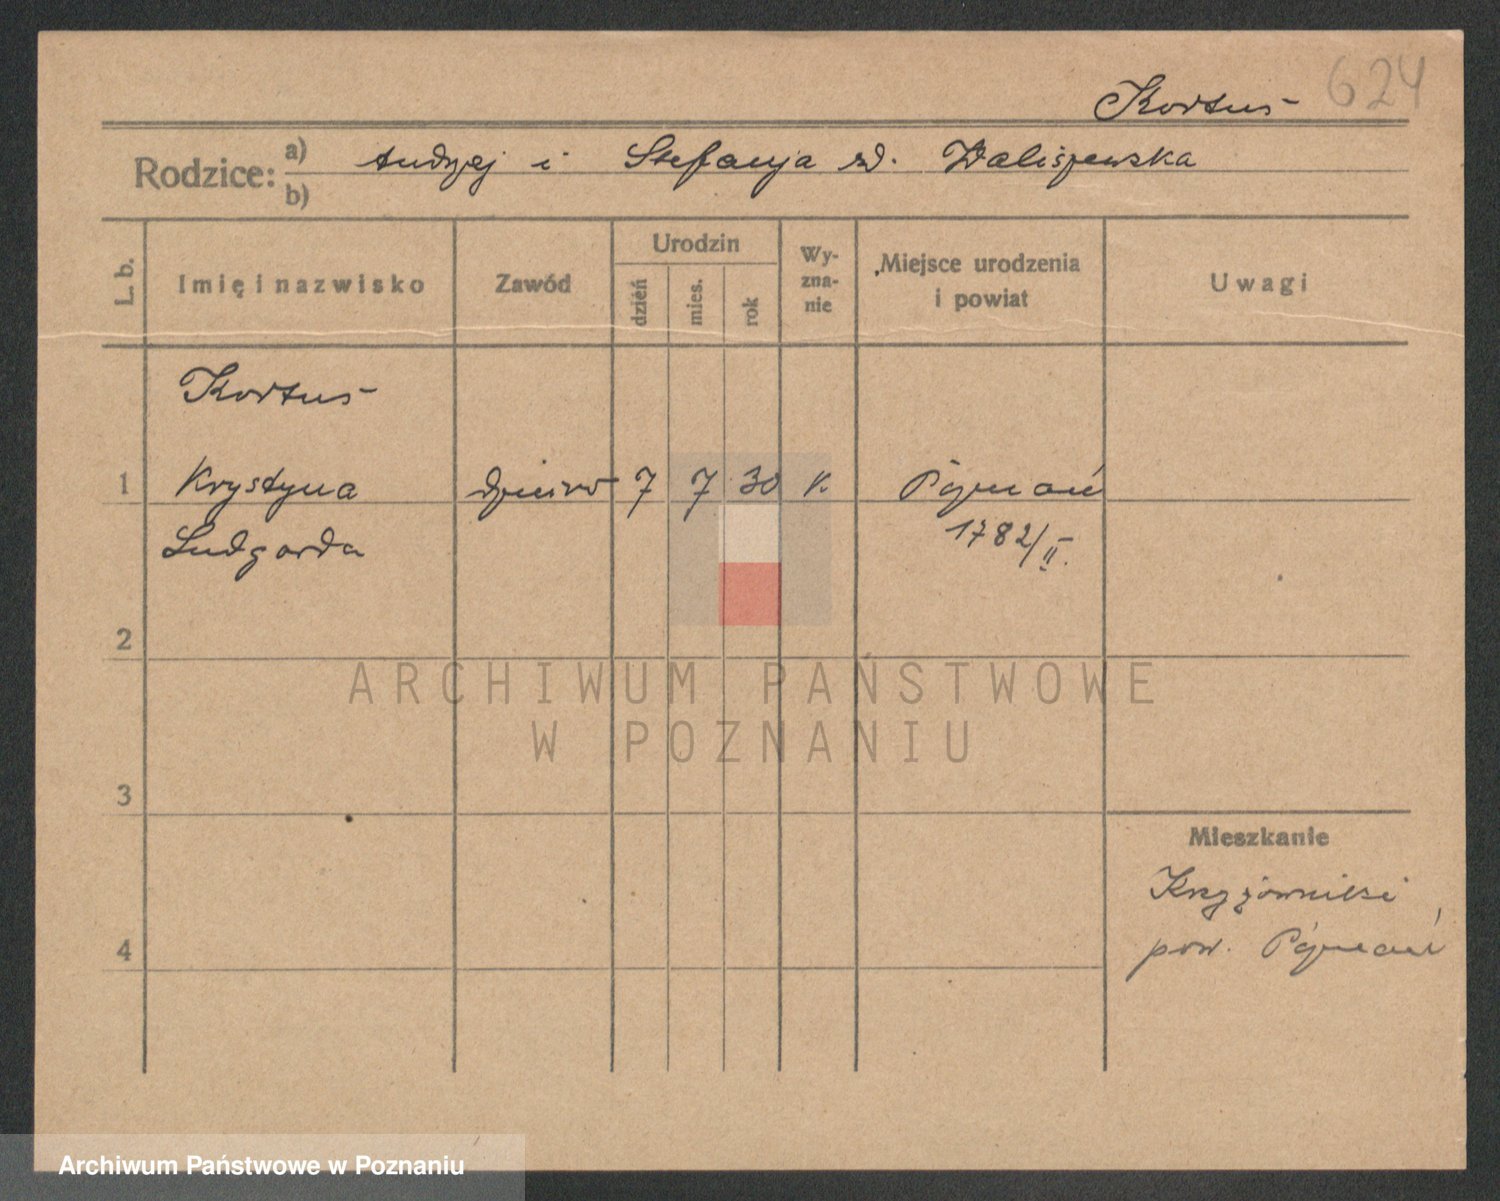 624
Kortus
Rodzice: a) Andrzej i Stefanja zd. Waliszewska
b)
L. b. Imię i nazwisko Zawód Urodzin dzień mies. rok Wy-zna-nie Miejsce urodzenia i powiat Uwagi
Kortus
1 Krystyna 7 7 30 k. Poznań
Ludgarda 1782/II.
2
ARCHIWUM PAŃSTWOWE
W POZNANIU
3
Mieszkanie
Krzyżowniki
4 pow. Poznań
Archiwum Państwowe w Poznaniu